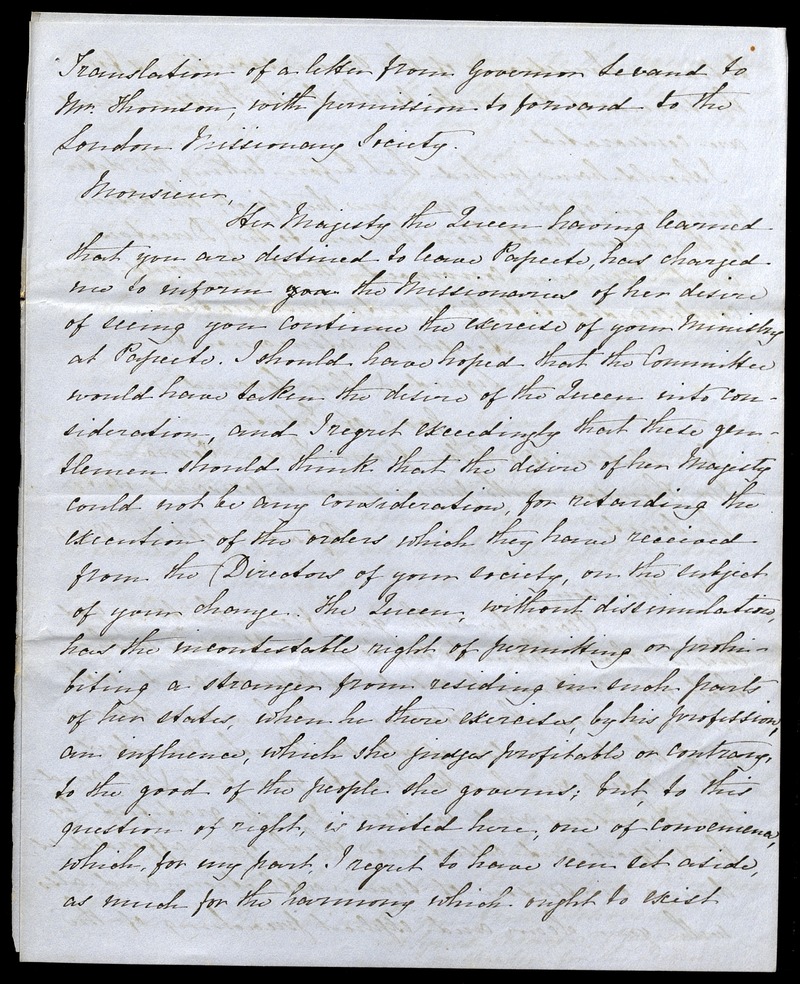 Translation of a letter from Governor Lavaud to
Mr. Thomson, with permission to forward to the
London Missionary Society.
Monsieur,
Her Majesty the Queen having learned
that you are destined to leave Papeete, has charged
me to inform you the Missionaries of her desire
of seeing you continue the exercise of your Ministry
at Papeete. I should have hoped that the Committee
would have taken the desire of the Queen into con-
sideration, and I regret exceedingly that these gen-
tlemen should think that the desire of her Majesty
could not be any consideration, for retarding the
execution of the orders which they have received
from the Directors of your society, on the subject
of your change. The Queen, without dissimulation,
has the incontestable right of permitting or prohi-
biting a stranger from residing in such parts
of her states, when he there exercises, by his profession,
an influence, which she judges profitable or contrary,
to the good of the people she governs; but, to this
question of right, is united here, one of convenience,
which, for my part, I regret to have seen set aside,
as much for the harmony which ought to exist